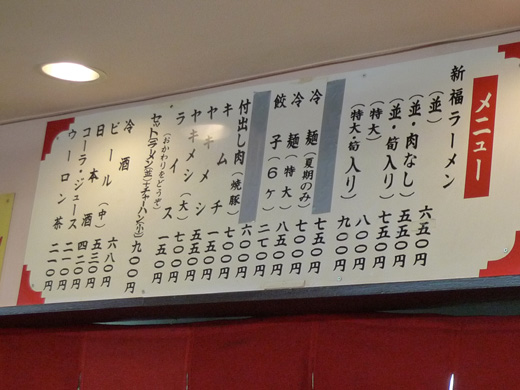 メニュー
新福ラーメン
(並) 六五〇円
(並・肉なし) 五五〇円
(並・筍入り) 七五〇円
(特大) 八〇〇円
(特大・筍入り) 九〇〇円
冷麺(夏期のみ) 七五〇円
冷麺(特大) 八五〇円
餃子(6ケ) 二七〇円
付出し肉(焼豚) 六〇〇円
キムチ 一五〇円
ヤキメシ 五五〇円
ヤキメシ(大) 七〇〇円
ライス 一五〇円
(おかわりをどうぞ)
セット(ラーメン並+チャーハン小) 九〇〇円
冷酒 六八〇円
ビール(中) 五三〇円
日本酒 四二〇円
コーラ・ジュース 二一〇円
ウーロン茶 二一〇円